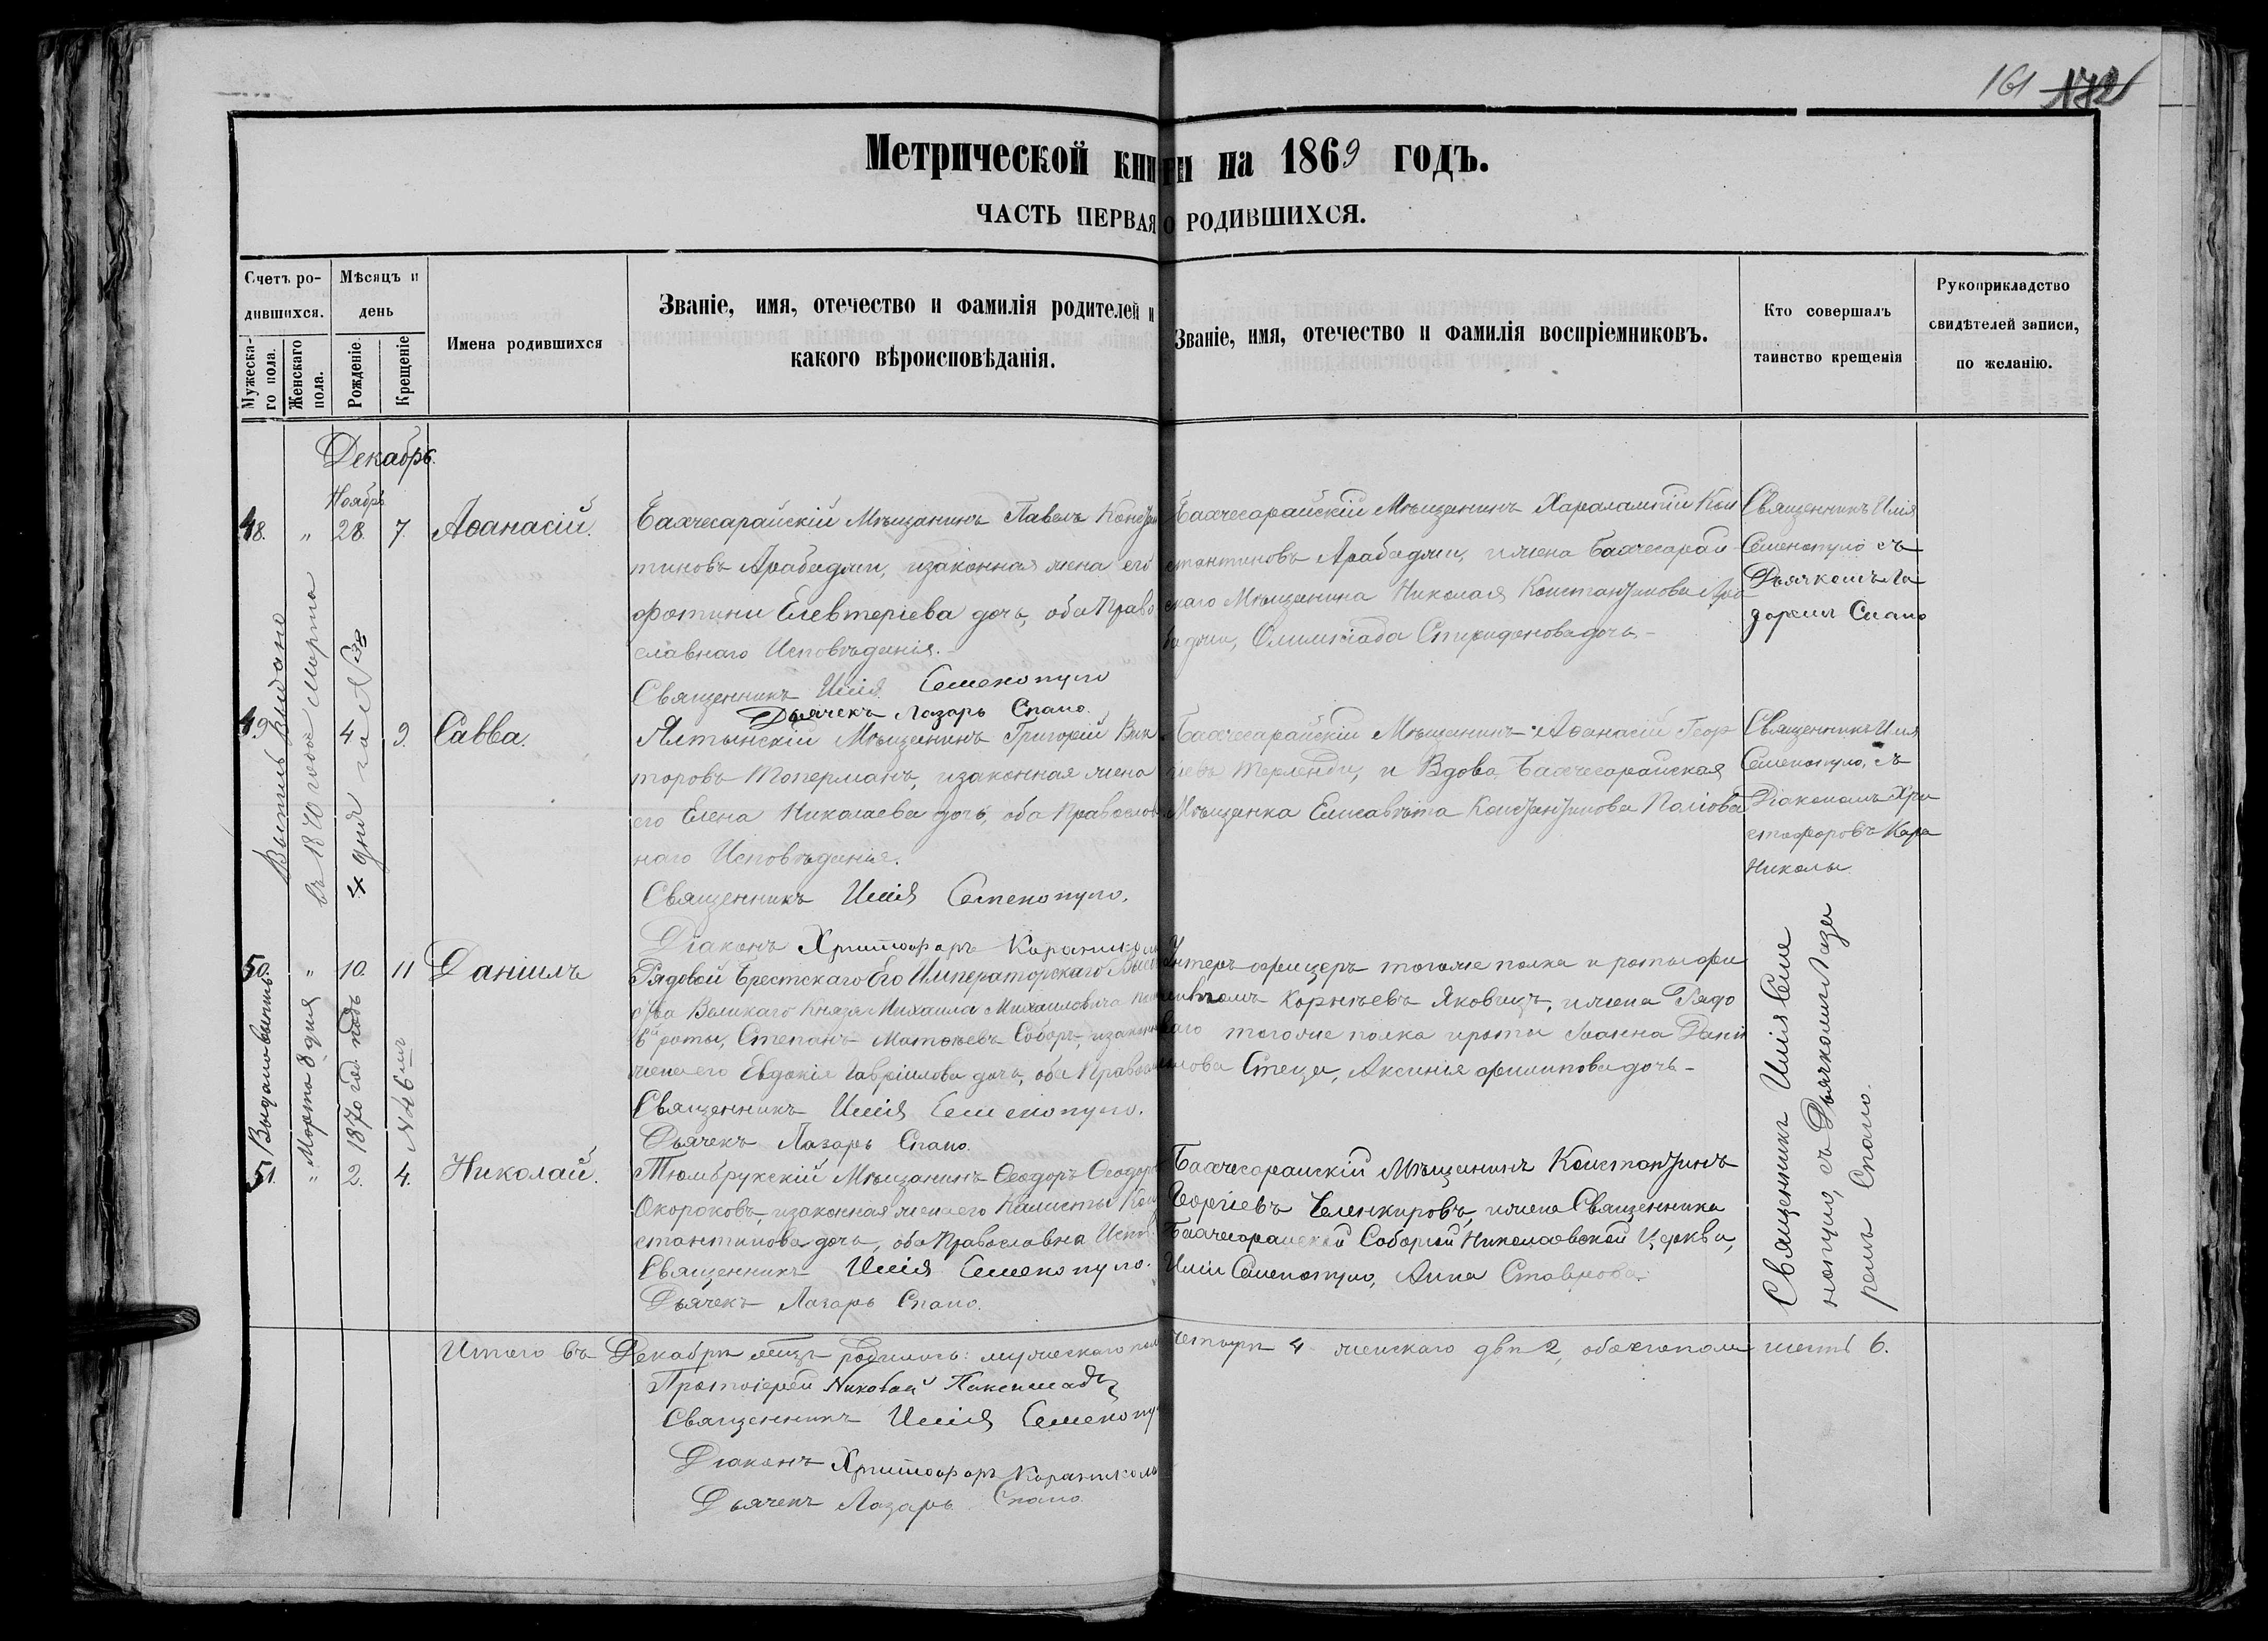 161 172
Метрической книги на 1869 годъ.
ЧАСТЬ ПЕРВАЯ О РОДИВШИХСЯ.
Счетъ ро-
дившихся.
Мужеска-
го пола.
Женскаго
пола.
Мѣсяцъ и
день
Рожденіе.
Крещеніе
Имена родившихся
Званіе, имя, отечество и фамилія родителей и
какого вѣроисповѣданія.
Званіе, имя, отечество и фамилія воспріемниковъ.
Кто совершалъ
таинство крещенія
Рукоприкладство
свидѣтелей записи,
по желанію.
Декабрь.
Ноябрь
48. " 28. 7. Аѳанасій.
Бахчесарайскій Мѣщанинъ Павелъ Констан
тиновъ Арабаджи, изаконная жена его
Фотини Елевтеріева дочь, оба Право
славнаго Исповѣданія.-
Священникъ Илія Семенопуло
Дьячекъ Лазарь Спано.
Бахчесарайскій Мѣщанинъ Харалампій Кон
стантиновъ Арабаджи, ижена Бахчесарай
скаго Мѣщанина Николая Константинова Ара
баджи, Олимпіада Спиридонова дочь.-
Священникъ Илія
Семенопуло съ
Дьячкомъ Ла
заремъ Спано
49. 4. 9. Савва.
Ялтынскій Мѣщанинъ Григорій Вик
торовъ Топерманъ, изаконная жена
его Елена Николаева дочь, оба Православ
наго Исповѣданія.
Священникъ Илія Семенопуло.
Діаконъ Христофоръ Караниколы
Бахчесарайскій Мѣщанинъ Аѳанасій Геор
гіевъ Терленди, и Вдова Бахчесарайская
Мѣщанка Елисавѣта Константинова Поліова
Священникъ Илія
Семенопуло, съ
Діакономъ Хри
стофоровъ Кара
Николы
Выпись выдана
въ 1870 года Марта
4 дня за №38
50. " 10. 11 Даніилъ
Рядовой Брестскаго Его Императорскаго Высоч
ства Великаго Князя Михаила Михаиловича полк
6й роты, Степанъ Матѳеевъ Соборъ, изаконн
жена его Евдокія Гавріилова дочь, оба Правосл
Священникъ Илія Семенопуло.
Дьячекъ Лазарь Спано.
Унтеръ-офицеръ тогоже полка и роты Фи
Корнѣевъ Яковецъ, ижена Рядо
ваго тогоже полка ироты Іоанна Дани
илова Стеца, Аксинія Филипова дочь-
Выдано выпись
Марта 8 дня
1870 год. подъ
№46мъ
51. " 2. 4. Николай.
Тюмбрукскій Мѣщанинъ Ѳеодоръ Ѳеодоро
Окороковъ, изаконная жена его Калиста Кон
стантинова дочь, оба Православна Испов.
Священникъ Илія Семенопуло.
Дьячекъ Лазарь Спано.
Бахчесарайскій Мѣщанинъ Константинъ
Георгіевъ Челенкировъ, ижена Священника
Бахчесарайской Соборной Николаевской Церкви,
Иліи Семенопуло, Анна Ставрова.
Священникъ Илія Семе
нопуло, съ Дьячкомъ Лаза
ремъ Спано.
Итого въ Декабрѣ мѣцѣ родилось: мужескаго пола четыри 4 женскаго двѣ 2, обоегопола шесть 6.
Протоіерей Николай
Священникъ Илія Семенопу
Діаконъ Христофоръ Караниколы
Дьячекъ Лазарь Спано